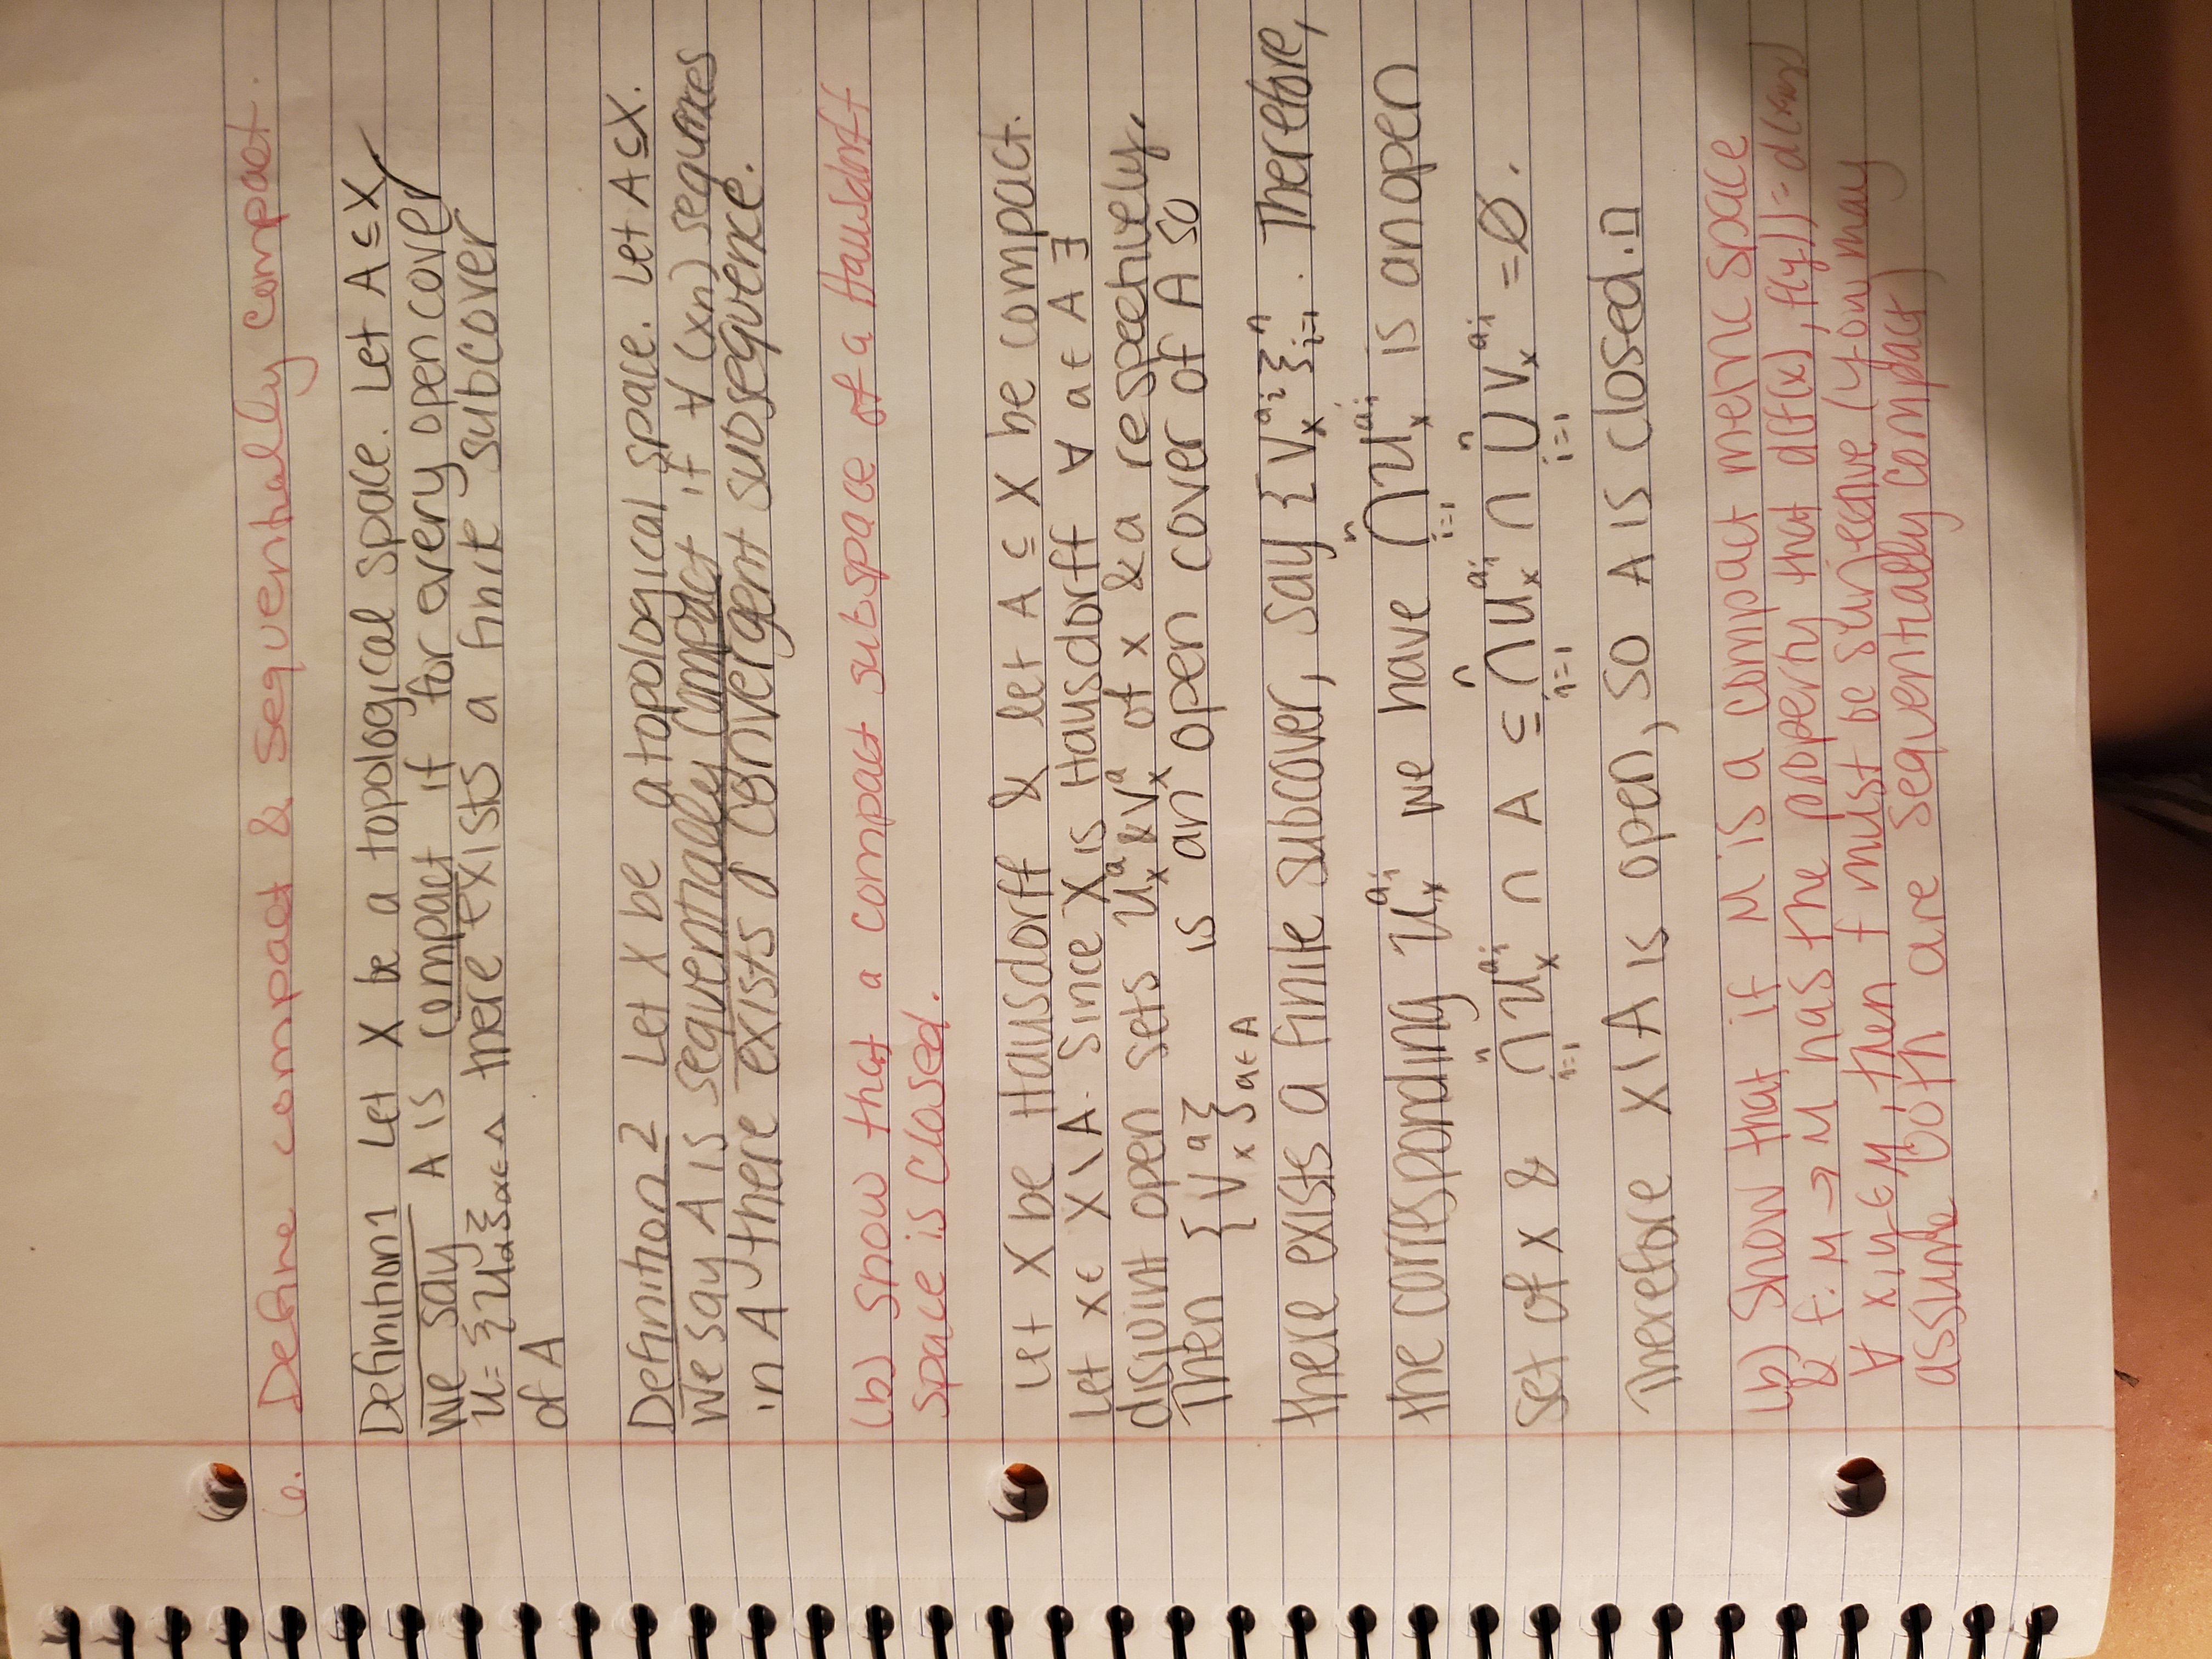 6. Define compact & sequentially compact.
Definition 1 Let X be a topological space. Let A ⊆ X
We say A is compact if for every open cover
U = {Uα}α∈Λ there exists a finite subcover
of A
Definition 2 Let X be a topological space. Let A ⊆ X.
We say A is sequentially compact if ∀ (xn) sequences
in A there exists a convergent subsequence.
(b) Show that a compact subspace of a Hausdorff
space is closed.
Let X be Hausdorff & let A ⊆ X be compact.
Let x ∈ X \ A. Since X is Hausdorff ∀ a ∈ A ∃
disjoint open sets Uₓᵃ & Vₓᵃ of x & a respectively,
Then {Vₓᵃ}a∈A is an open cover of A so
there exists a finite subcover, say {Vₓ^{ai}}ⁿᵢ₌₁. Therefore,
the corresponding Uₓ^{ai} we have (⋂ⁿᵢ₌₁ Uₓ^{ai} is an open
set of x & ⋂ⁿᵢ₌₁ Uₓ^{ai} ∩ A ⊆ ⋂ⁿᵢ₌₁ Uₓ^{ai} ∩ ⋃ⁿᵢ₌₁ Vₓ^{ai} = Ø.
Therefore X \ A is open, so A is closed. □
(b) Show that if M is a compact metric space
& f: M → M has the property that d(f(x), f(y)) = d(x,y)
∀ x,y ∈ M, then f must be surjective (you may
assume both are sequentially compact)